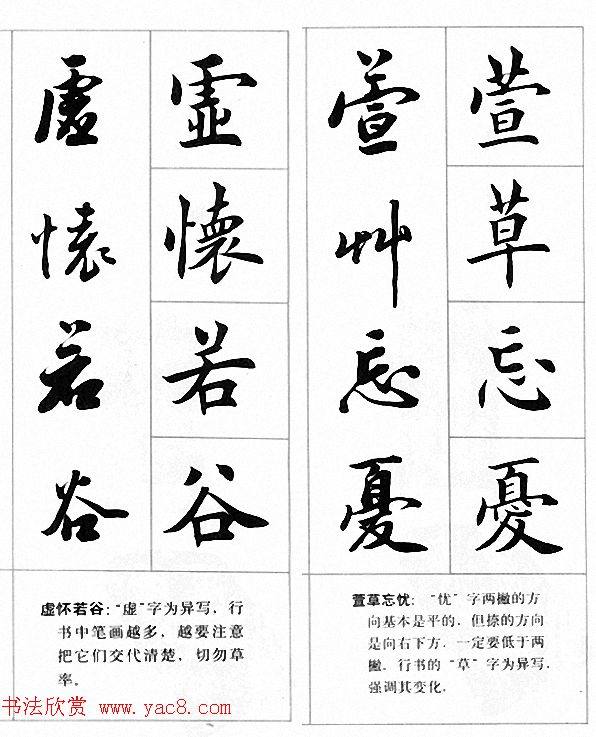 萱草忘憂
萱艸忘憂
萱草忘忧：“忧”字两撇的方
向基本是平的，但捺的方向
是向右下方，一定要低于两
撇。行书的“草”字为异写，
强调其变化。
虛懷若谷
虛懷若谷
虚怀若谷：“虚”字为异写，行
书中笔画越多，越要注意
把它们交代清楚，切勿草
率。
书法欣赏 www.yac8.com